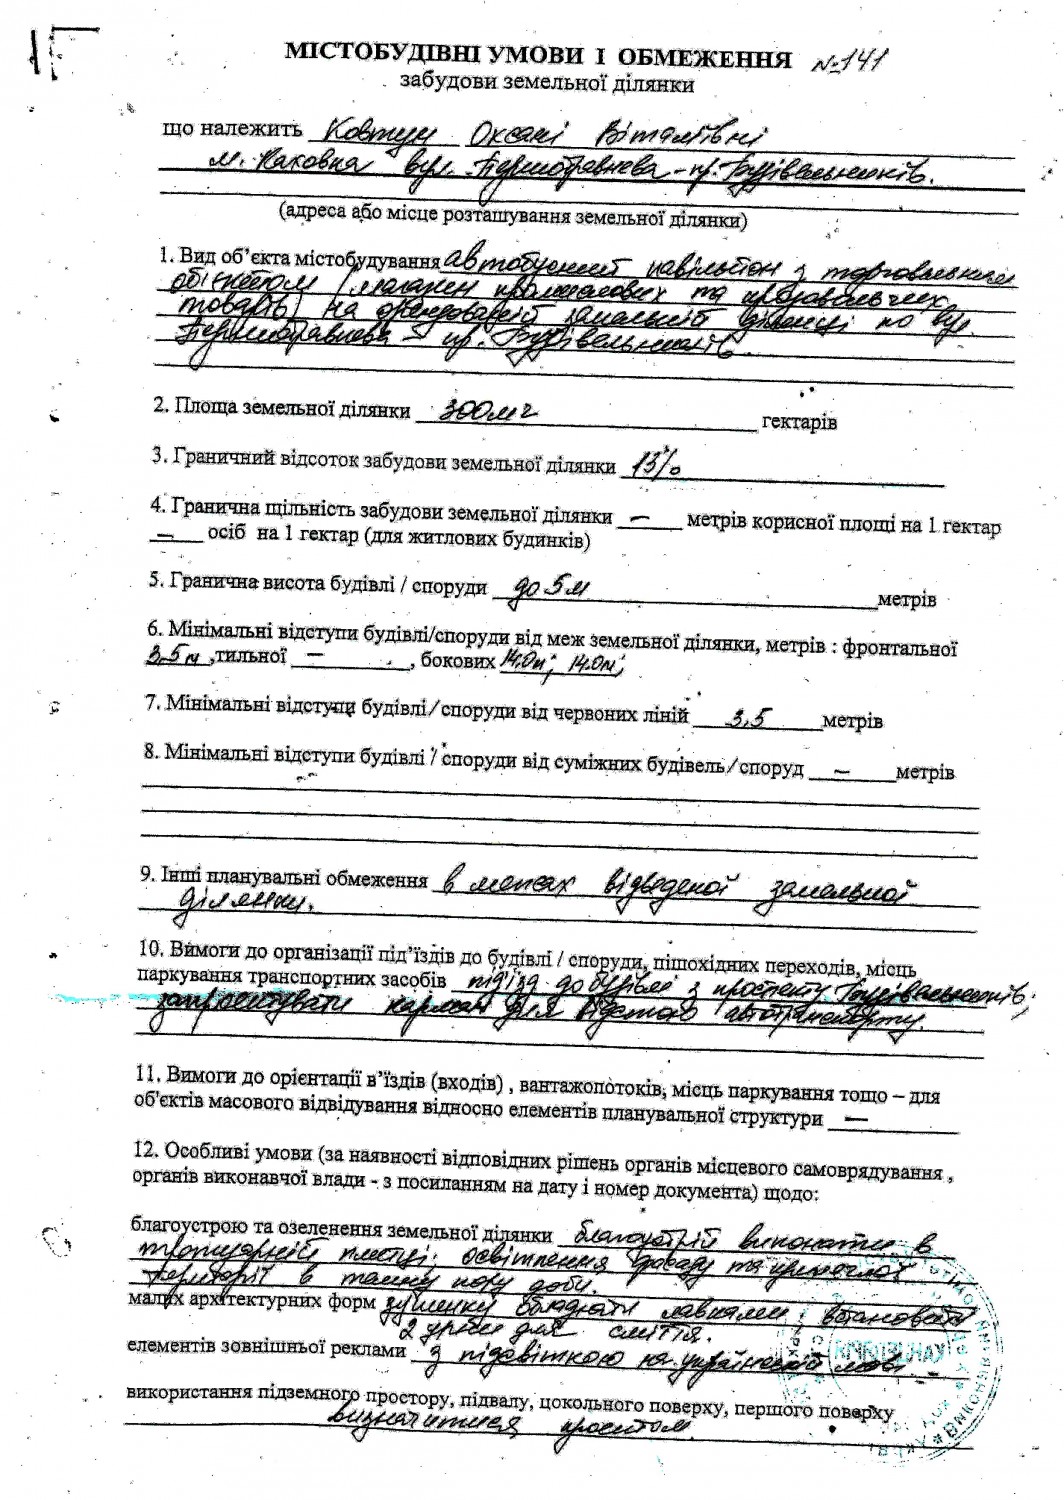 МІСТОБУДІВНІ УМОВИ І ОБМЕЖЕННЯ №141
забудови земельної ділянки
що належить Ковтун Оксані Віталіївні
м. Каховка вул. Першотравнева – пр. Будівельників.
(адреса або місце розташування земельної ділянки)
1. Вид об’єкта містобудування автобусний павільйон з торговельним
об'єктом (магазин промислових та продовольчих
товарів) на орендованій земельній ділянці по вул.
Першотравнева – пр. Будівельників.
2. Площа земельної ділянки 300м2 гектарів
3. Граничний відсоток забудови земельної ділянки 13%
4. Гранична щільність забудови земельної ділянки — метрів корисної площі на 1 гектар
— осіб на 1 гектар (для житлових будинків)
5. Гранична висота будівлі / споруди до 5м метрів
6. Мінімальні відступи будівлі/споруди від меж земельної ділянки, метрів : фронтальної
3,5м ,тильної — , бокових 14.0м; 14.0м;
7. Мінімальні відступи будівлі/споруди від червоних ліній 3,5 метрів
8. Мінімальні відступи будівлі / споруди від суміжних будівель/споруд — метрів
9. Інші планувальні обмеження в межах відведеної земельної
ділянки.
10. Вимоги до організації під’їздів до будівлі / споруди, пішохідних переходів, місць
паркування транспортних засобів під'їзд до будівлі з проспекту Будівельників;
запроектувати карман для відстою автотранспорту.
11. Вимоги до орієнтації в’їздів (входів) , вантажопотоків, місць паркування тощо – для
об'єктів масового відвідування відносно елементів планувальної структури —
12. Особливі умови (за наявності відповідних рішень органів місцевого самоврядування ,
органів виконавчої влади - з посиланням на дату і номер документа) щодо:
благоустрою та озеленення земельної ділянки благоустрій виконати в
тротуарній плитці; освітлення фасаду та прилеглої
території в темну пору доби.
малих архітектурних форм зупинку обладнати лавками; встановити
2 урни для сміття.
елементів зовнішньої реклами з підсвіткою на українській мові
використання підземного простору, підвалу, цокольного поверху, першого поверху
визначитися проектом.